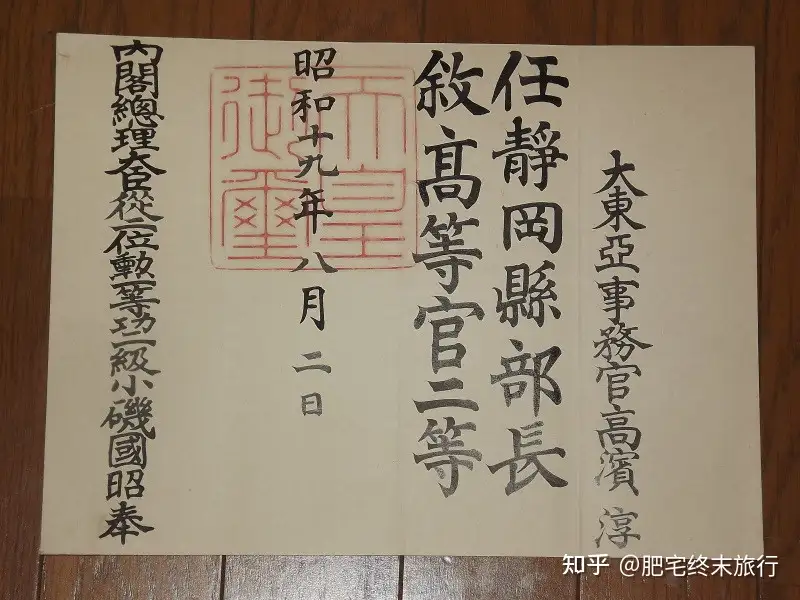 大東亞事務官高濱淳
任靜岡縣部長
敘高等官二等
昭和十九年八月二日
天皇
御璽
內閣總理大臣從二位勳一等功二級小磯國昭奉
知乎 @肥宅终末旅行